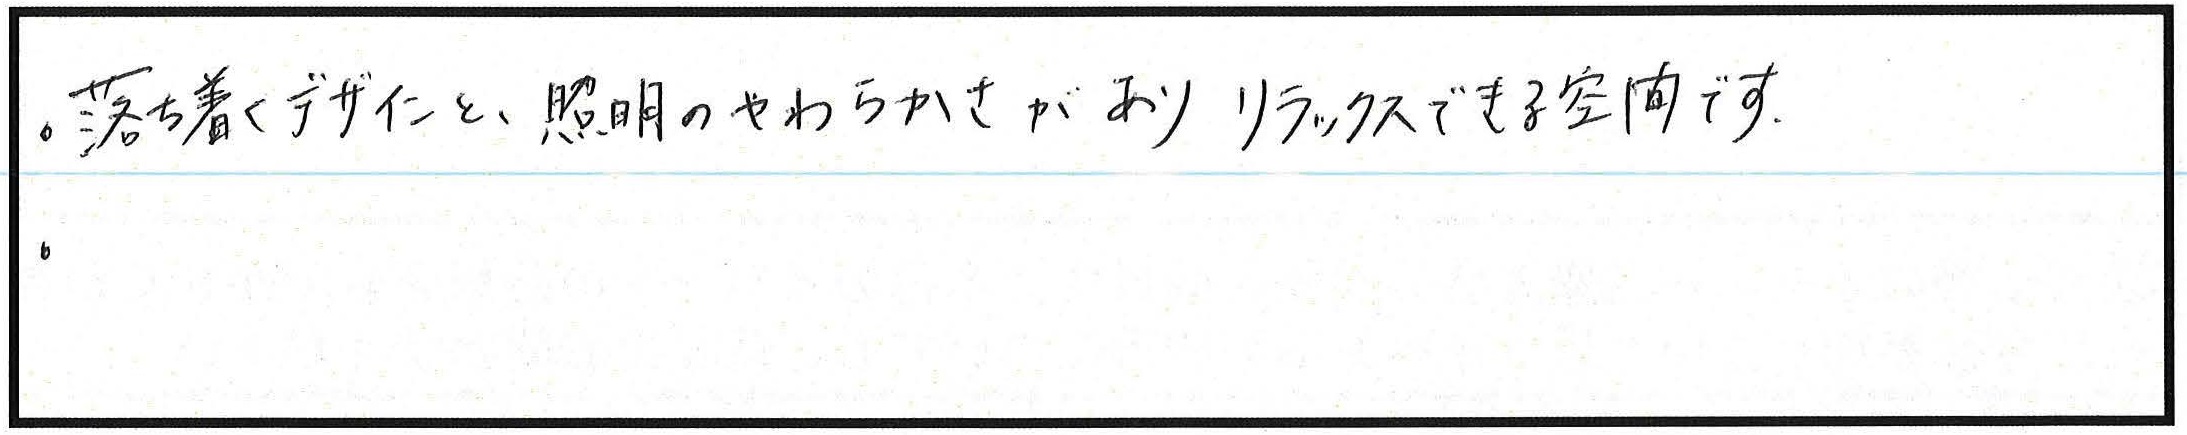 。落ち着くデザインと、照明のやわらかさがあり リラックスできる空間です.
。